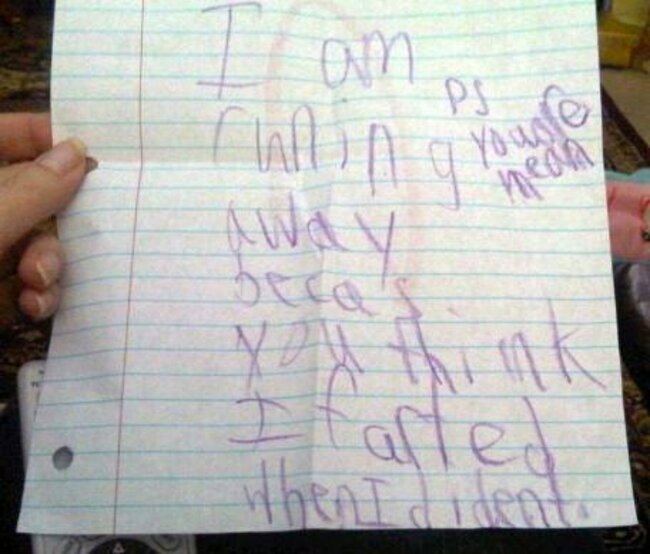 I am
runing
PS
you are
mean
away
becas
you think
I farted
when I dident.